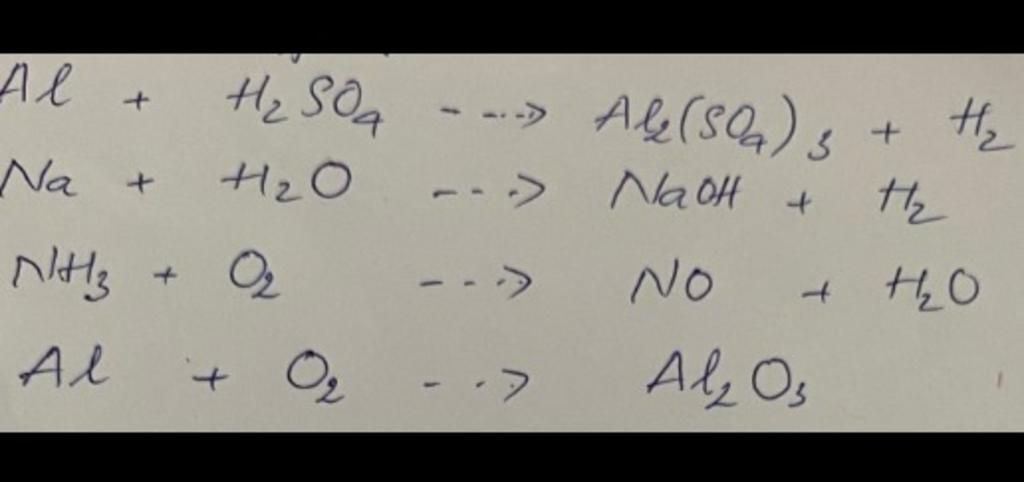 Al + H₂SO₄ ---> Al₂(SO₄)₃ + H₂
Na + H₂O ---> NaOH + H₂
NH₃ + O₂ ---> NO + H₂O
Al + O₂ ---> Al₂O₃